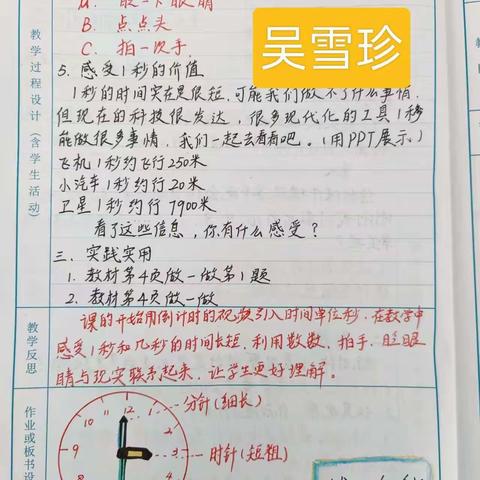 A. 眨一下眼睛
B. 点点头
C. 拍一次手
吴雪珍
教学过程设计（含学生活动）
5. 感受1秒的价值
1秒的时间实在是很短,可能我们做不了什么事情,
但现在的科技很发达，很多现代化的工具1秒
能做很多事情，我们一起去看看吧。(用PPT展示)
飞机1秒约飞行250米
小汽车1秒约行20米
卫星1秒约行7900米
看了这些信息，你有什么感受？
三、实践实用
1. 教材第4页做一做第1题
2. 教材第4页做一做
教学反思
课的开始用倒计时的视频引入时间单位秒,在教学中
感受1秒和几秒的时间长短,利用数数、拍手、眨眼
睛与现实联系起来,让学生更好理解。
作业或板书设
分针(细长)
时针(短粗)
11 12 1
10 2
9 3
8 4